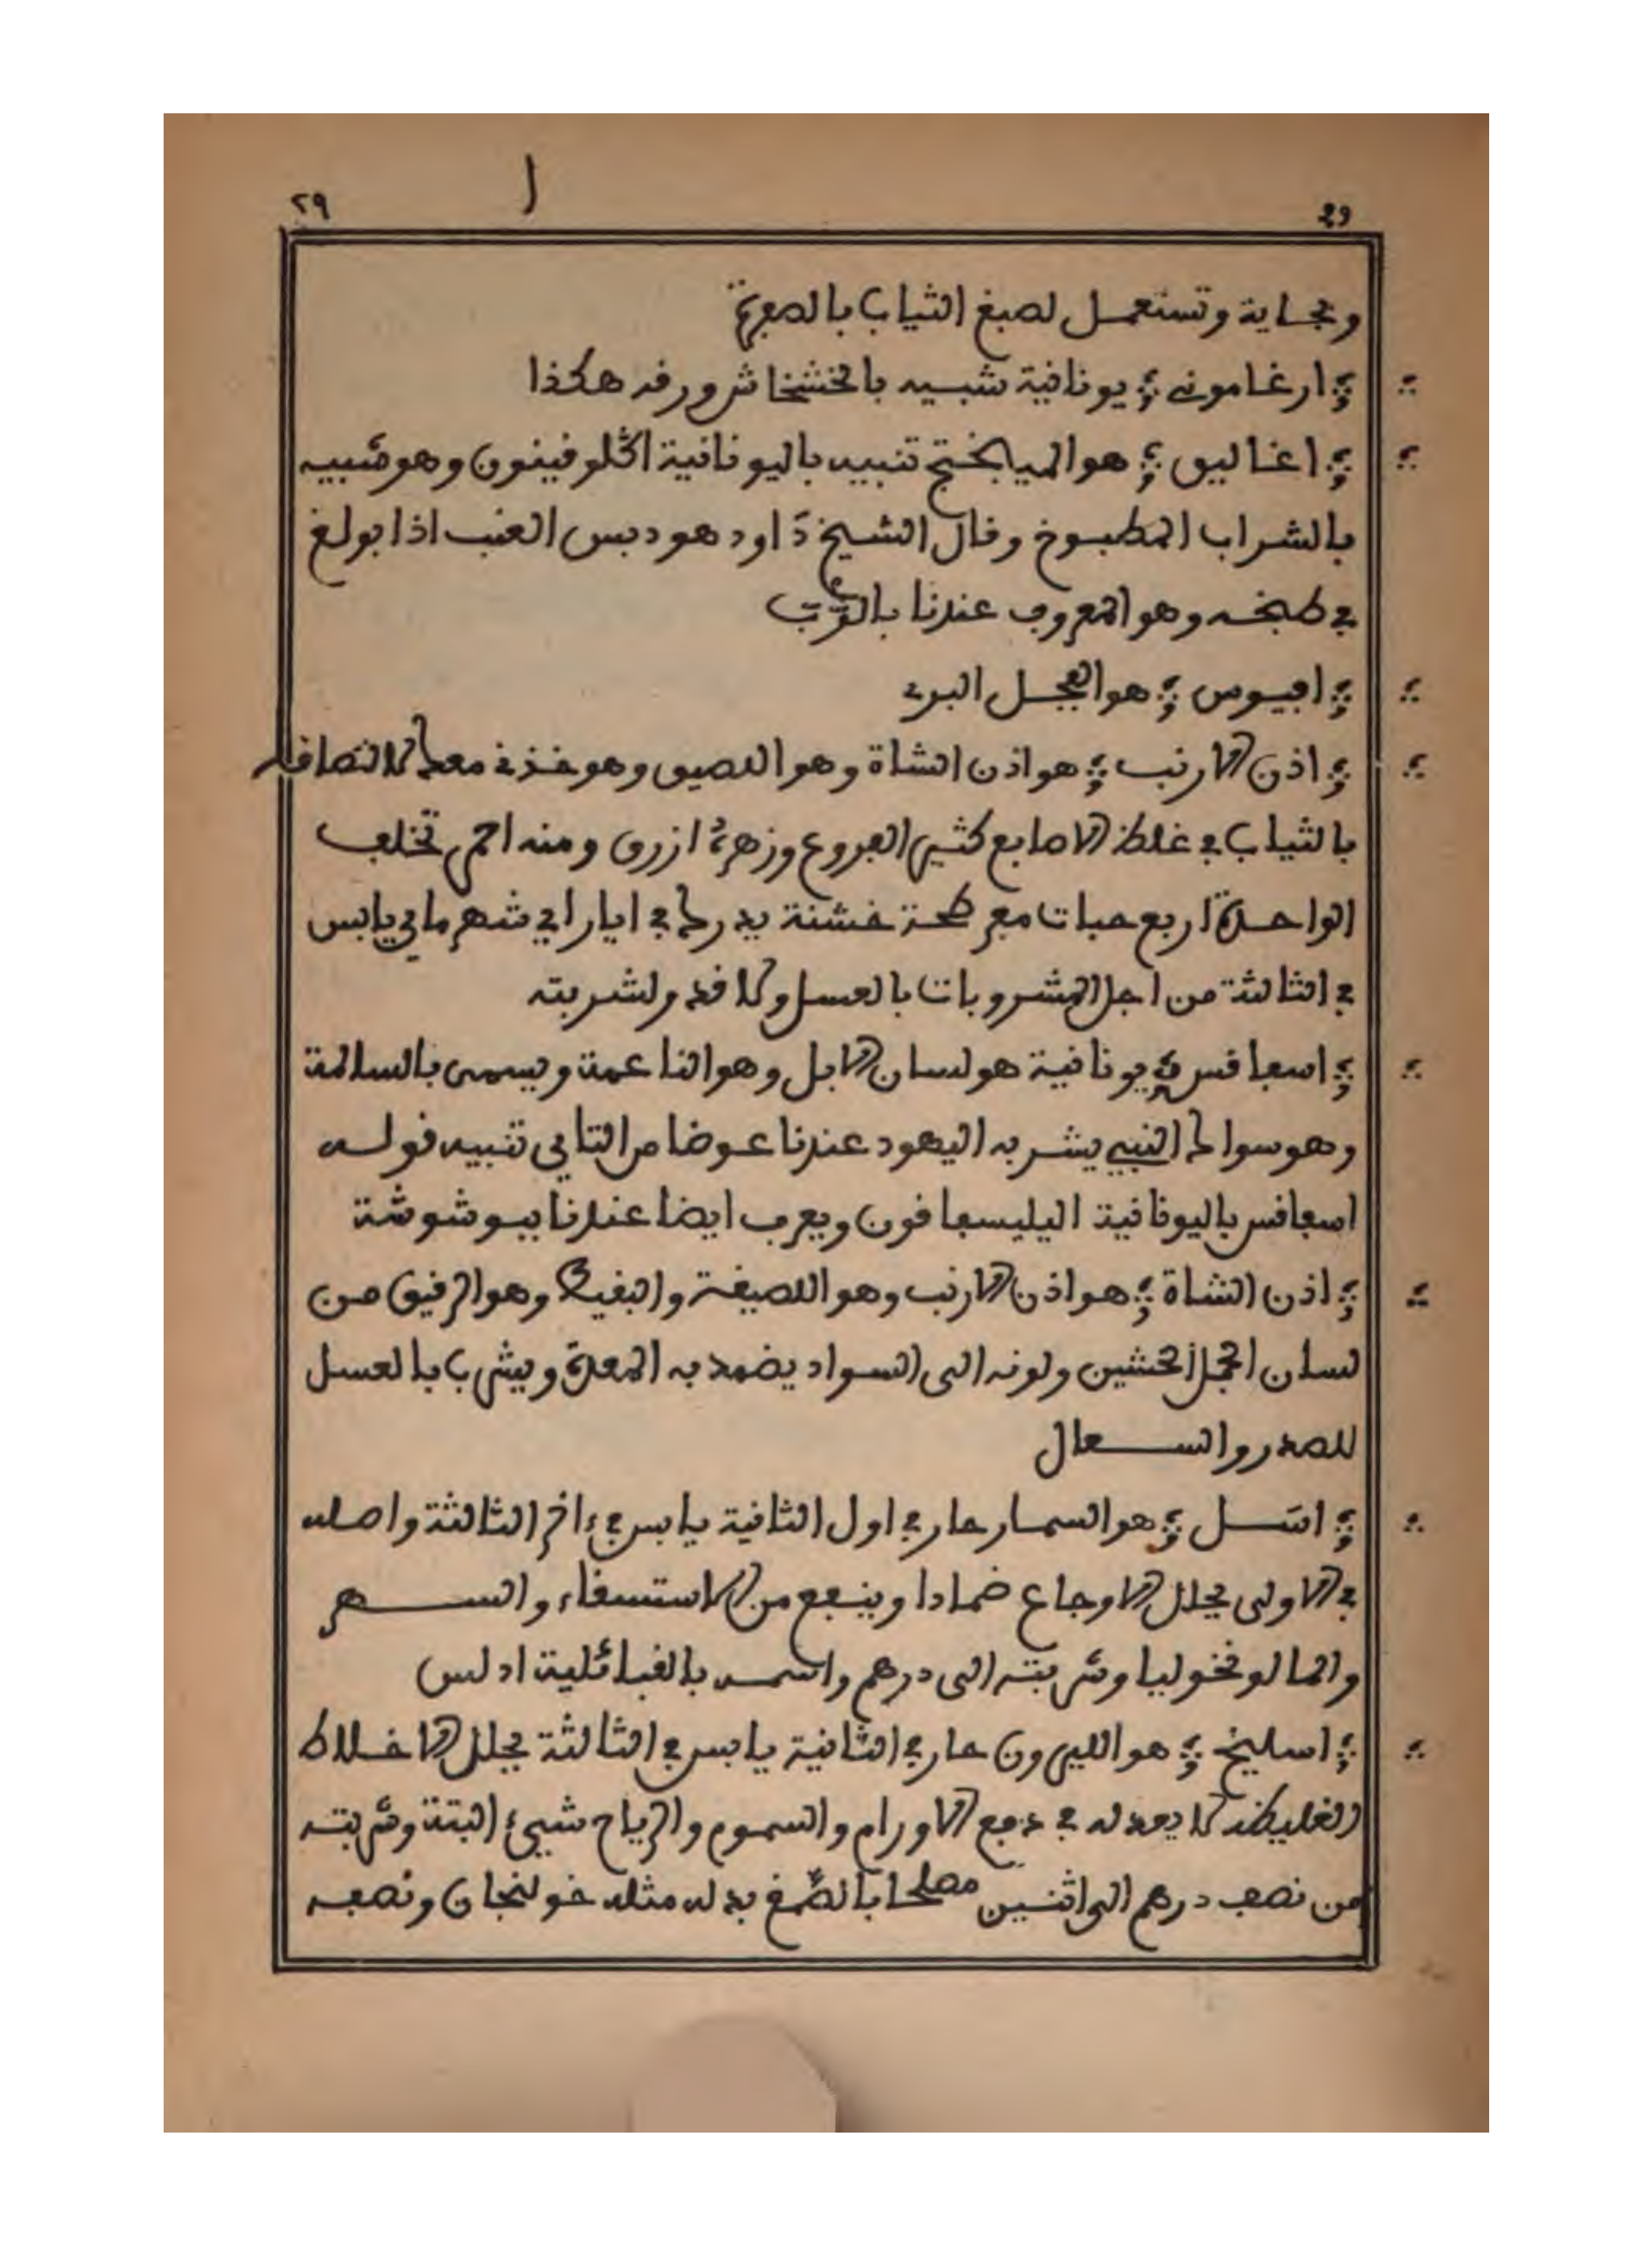 ٢٩ ا 29
وبجاية وتستعمل لصبغ الثياب بالصفرة
ارغاموني يونانية شبيه بالخشخاش ورقه هكذا
اغاليق هو الميابختج تنبيه باليونانية اڭلوفينون وهو شبيه
بالشراب المطبوخ وقال الشيخ داود هو دبس العنب اذا بولغ
في طبخه وهو المعروف عندنا بالرُّبّ
افيوس هو الفجل البري
اذن الارنب هو اذن الشاة وهو اللصيق وهو خذني معك لالتصاقه
بالثياب في غلظ الاصابع كثير الفروع وزهره ازرق ومنه احمر تخلف
الواحدة اربع حبات مفرطحة خشنة يدرك في ايار اي شهر ماي يابس
في الثالثة من اجل المشروبات بالعسل ولا قدر لشربته
اسفاقس يونانية هو لسان الابل وهو الناعمة ويسمى بالسالمة
وهو سواك النبي يشربه اليهود عندنا عوضا من التاي تنبيه قوله
اسفاقس باليونانية اليليسفاقون ويعرف ايضا عندنا ببوشوشة
اذن الشاة هو اذن الارنب وهو اللصيقة وهو الرقيق من
لسان الحمل الخشين ولونه الى السواد يضمد به المعدة ويشرب بالعسل
للصدر والسعال
اسَل هو السمار حار في اول الثانية يابس في ءاخر الثالثة واصله
في الاولى يحلل الاوجاع ضمادا وينفع من الاستسقاء والسهر
والمالونخوليا وشربته الى درهم واسمه بالقبائلية ادلس
اسليخ هو الليرون حار في الثانية يابس في الثالثة يحلل الاخلاط
الغليظة لا يعدله في دفع الاورام والسموم والرياح شيىء البتة وشربته
من نصف درهم الى اثنين مصلحا بالصَّمغ بدله مثله خولنجان ونصفه